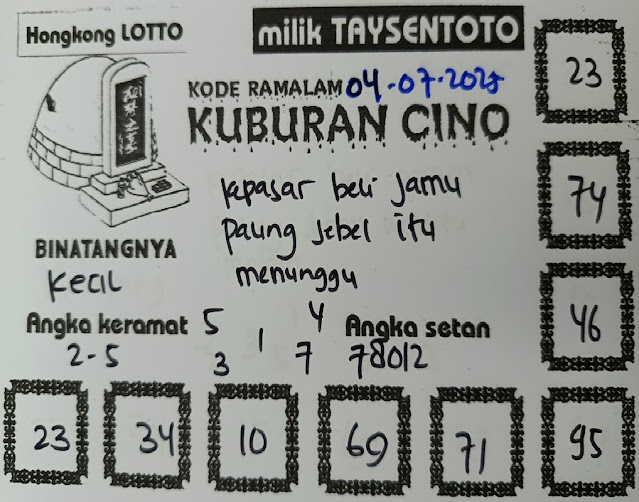 Hongkong LOTTO
milik TAYSENTOTO
KODE RAMALAM 04-07-2025
KUBURAN CINO
kepasar beli Jamu
paling sebel itu
menunggu
BINATANGNYA
Kecil
Angka keramat
2-5
5 4
1
3 7
Angka setan
78012
23
74
46
95
23 34 10 69 71